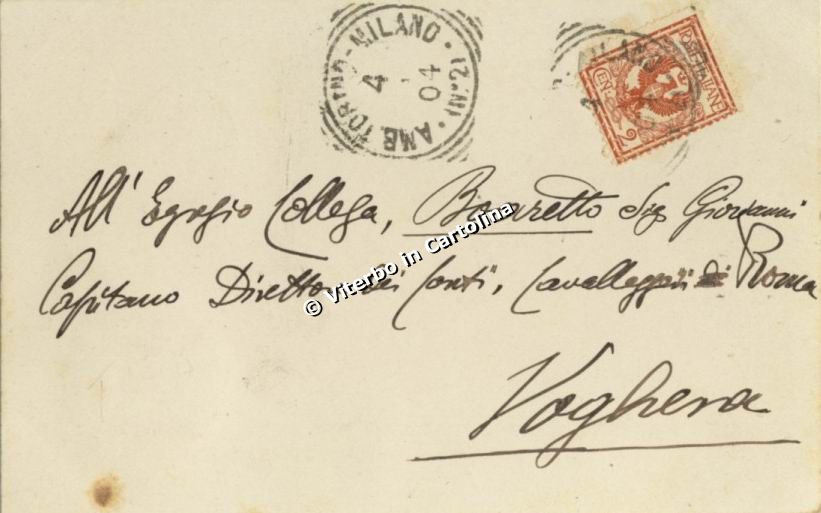 AMB. TORINO - MILANO · (2.NI) ·
4
04
MILANO
POSTE ITALIANE
CEN. 2
All' Egregio Collega, Bonaretto Sig Giovanni
Capitano Direttore dei Conti, Cavalleggeri di Roma
Voghera
© Viterbo in Cartolina